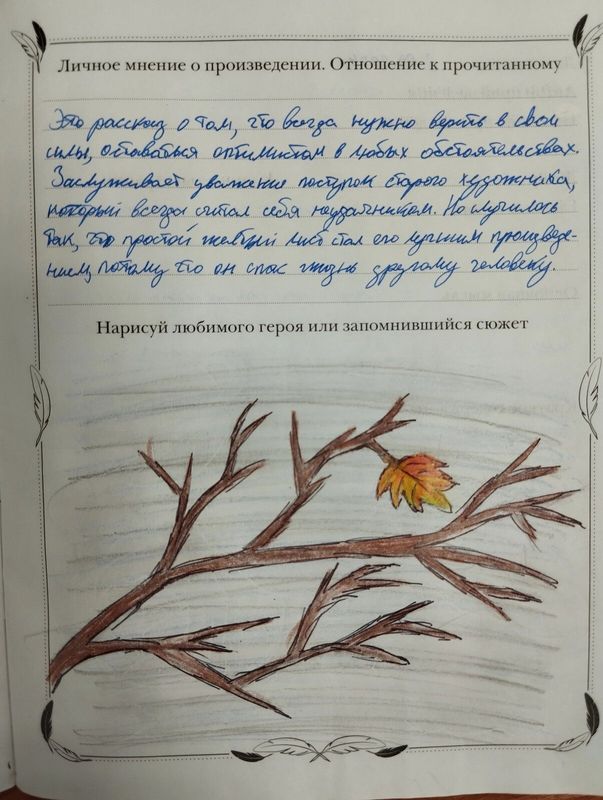 Личное мнение о произведении. Отношение к прочитанному
Это рассказ о том, что всегда нужно верить в свои
силы, оставаться оптимистом в любых обстоятельствах.
Заслуживает уважение поступок старого художника,
который всегда считал себя неудачником. Но случилось
так, что простой желтый лист стал его лучшим произведе-
нием, потому что он спас жизнь другому человеку.
Нарисуй любимого героя или запомнившийся сюжет